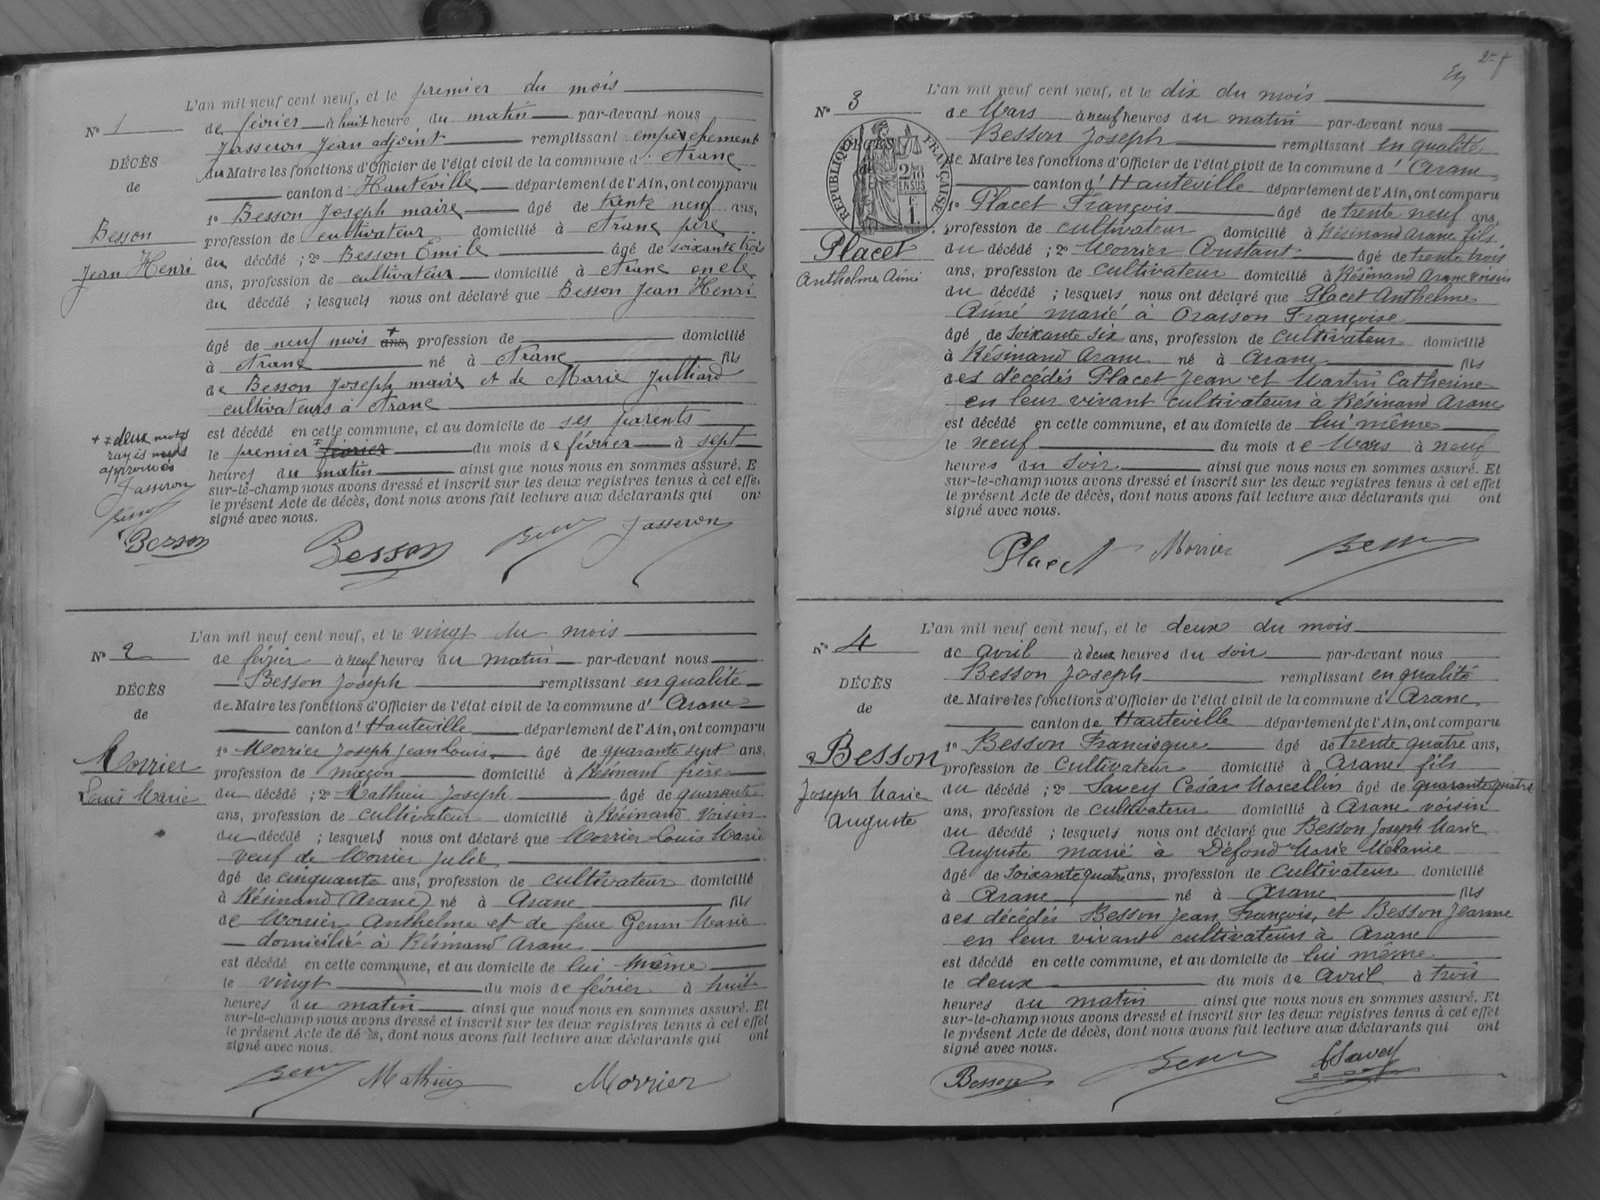 L'an mil neuf cent neuf, et le premier du mois
N° 1
de février à huit heure du matin par-devant nous
Jasseron Jean adjoint remplissant empêchement
DÉCÈS
du Maire les fonctions d'Officier de l'état civil de la commune d' Aranc
de
canton d' Hauteville département de l'Ain, ont comparu
1° Besson Joseph maire âgé de trente neuf ans,
Besson
profession de cultivateur domicilié à Aranc père
Jean Henri
du décédé ; 2° Besson Emile âgé de soixante trois
ans, profession de cultivateur domicilié à Aranc oncle
du décédé ; lesquels nous ont déclaré que Besson Jean Henri
âgé de neuf mois + ans, profession de domicilié
à Aranc né à Aranc fils
de Besson Joseph maire et de Marie Julliard
cultivateurs à Aranc
est décédé en cette commune, et au domicile de ses parents
++ deux mots
rayés
approuvés
Jasseron
le premier février du mois de février à sept
heures du matin ainsi que nous nous en sommes assuré. E
sur-le-champ nous avons dressé et inscrit sur les deux registres tenus à cet effe
le présent Acte de décès, dont nous avons fait lecture aux déclarants qui on
signé avec nous.
Besson Besson Jasseron
L'an mil neuf cent neuf, et le vingt du mois
N° 2
de février à neuf heures du matin par-devant nous
Besson Joseph remplissant en qualité
DÉCÈS
de Maire les fonctions d'Officier de l'état civil de la commune d' Aranc
de
canton d' Hauteville département de l'Ain, ont comparu
1° Morrier Joseph Jean Louis âgé de quarante sept ans,
Morrier
profession de maçon domicilié à Résinand frère
Louis Marie
du décédé ; 2° Mathieu Joseph âgé de quarante
ans, profession de cultivateur domicilié à Résinand voisin
du décédé ; lesquels nous ont déclaré que Morrier Louis Marie
veuf de Morrier Julie
âgé de cinquante ans, profession de cultivateur domicilié
à Résinand (Aranc) né à Aranc fils
de Morrier Anthelme et de feue Genin Marie
domicilié à Résinand Aranc
est décédé en cette commune, et au domicile de lui même
le vingt du mois de février à huit
heures du matin ainsi que nous nous en sommes assuré. Et
sur-le-champ nous avons dressé et inscrit sur les deux registres tenus à cet effet
le présent Acte de décès, dont nous avons fait lecture aux déclarants qui ont
signé avec nous.
Mathieu Morrier
L'an mil neuf cent neuf, et le dix du mois
N° 3
de Mars à neuf heures du matin par-devant nous
Besson Joseph remplissant en qualité
RÉPUBLIQUE FRANÇAISE
DÉCÈS
de Maire les fonctions d'Officier de l'état civil de la commune d' Aranc
canton d' Hauteville département de l'Ain, ont comparu
1° Placet François âgé de trente neuf ans,
profession de cultivateur domicilié à Résinand Aranc fils
Placet
Anthelme Aimé
du décédé ; 2° Morrier Constant âgé de trente trois
ans, profession de cultivateur domicilié à Résinand Aranc voisin
du décédé ; lesquels nous ont déclaré que Placet Anthelme
Aimé marié à Orarson Françoise
âgé de soixante six ans, profession de Cultivateur domicilié
à Résinand Aranc né à Aranc fils
des décédés Placet Jean et Martin Catherine
en leur vivant cultivateurs à Résinand Aranc
est décédé en cette commune, et au domicile de lui même
le neuf du mois de Mars à neuf
heures du soir ainsi que nous nous en sommes assuré. Et
sur-le-champ nous avons dressé et inscrit sur les deux registres tenus à cet effet
le présent Acte de décès, dont nous avons fait lecture aux déclarants qui ont
signé avec nous.
Placet Morrier
L'an mil neuf cent neuf, et le deux du mois
N° 4
de avril à deux heures du soir par-devant nous
Besson Joseph remplissant en qualité
DÉCÈS
de Maire les fonctions d'Officier de l'état civil de la commune d' Aranc
de
canton de Hauteville département de l'Ain, ont comparu
1° Besson Francisque âgé de trente quatre ans,
Besson
profession de Cultivateur domicilié à Aranc fils
Joseph Marie
Auguste
du décédé ; 2° Savey César Marcellin âgé de quarante quatre
ans, profession de cultivateur domicilié à Aranc voisin
du décédé ; lesquels nous ont déclaré que Besson Joseph Marie
Auguste marié à Défond Marie Mélanie
âgé de soixante quatre ans, profession de Cultivateur domicilié
à Aranc né à Aranc fils
des décédés Besson Jean François, et Besson Jeanne
en leur vivant cultivateurs à Aranc
est décédé en cette commune, et au domicile de lui même
le deux du mois de Avril à trois
heures du matin ainsi que nous nous en sommes assuré. Et
sur-le-champ nous avons dressé et inscrit sur les deux registres tenus à cet effet
le présent Acte de décès, dont nous avons fait lecture aux déclarants qui ont
signé avec nous.
Besson Savey